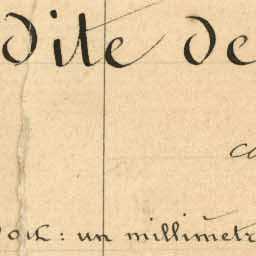 dite de
: un millimetr